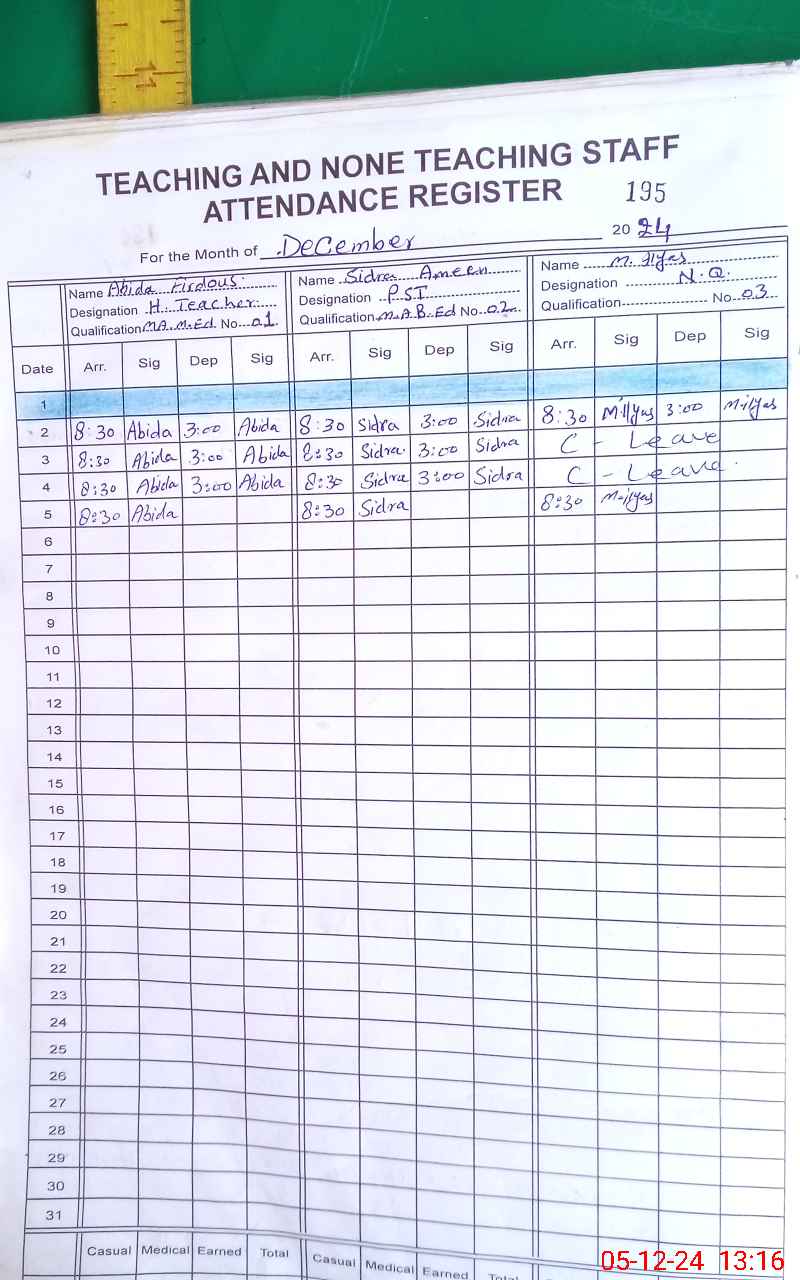 TEACHING AND NONE TEACHING STAFF
ATTENDANCE REGISTER 195
For the Month of December 2024
Name Abida Firdous Name Sidra Ameen Name M. Ilyas
Designation H. Teacher Designation PST Designation N.Q.
Qualification MA M.Ed. No 01 Qualification M.A B.Ed No 02 Qualification No 03
Date Arr. Sig Dep Sig Arr. Sig Dep Sig Arr. Sig Dep Sig
1
2 8:30 Abida 3:00 Abida 8:30 Sidra 3:00 Sidra 8:30 M.Ilyas 3:00 M.Ilyas
3 8:30 Abida 3:00 Abida 8:30 Sidra 3:00 Sidra C - Leave
4 8:30 Abida 3:00 Abida 8:30 Sidra 3:00 Sidra C - Leave
5 8:30 Abida 8:30 Sidra 8:30 M.Ilyas
6
7
8
9
10
11
12
13
14
15
16
17
18
19
20
21
22
23
24
25
26
27
28
29
30
31
Casual Medical Earned Total Casual Medical Earned Total
05-12-24 13:16